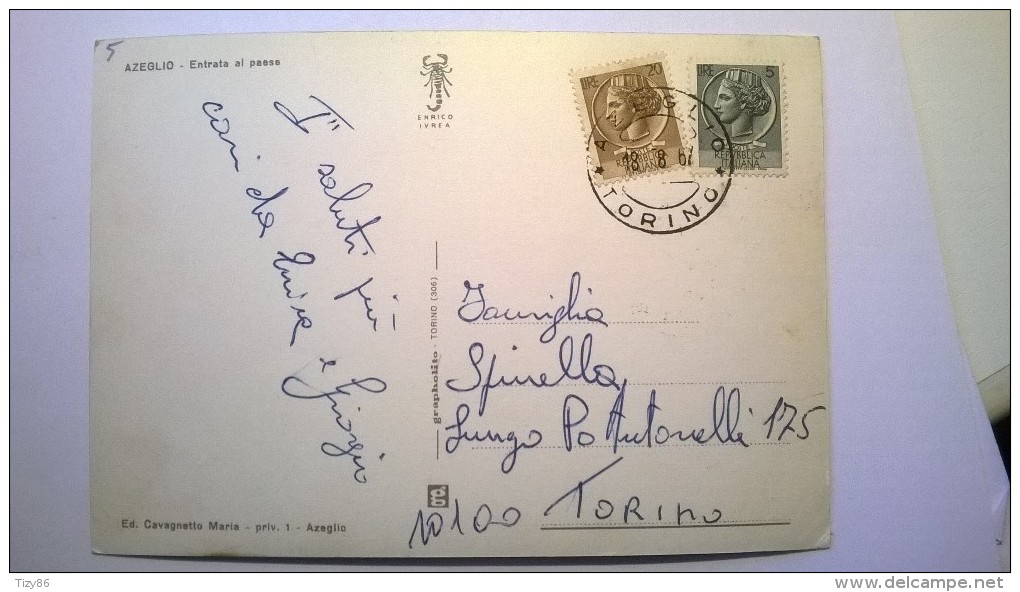 5
AZEGLIO - Entrata al paese
ENRICO
IVREA
LIRE 20
REPUBBLICA
ITALIANA
LIRE 5
REPUBBLICA
ITALIANA
18 8 67
TORINO
I più
saluti più
cari da
e Giorgio
grapholito - TORINO (306)
Famiglia
Spinella
Lungo Po Antonelli 175
10100 TORINO
Ed. Cavagnetto Maria - priv. 1 - Azeglio
Tizy86
delcampe.net